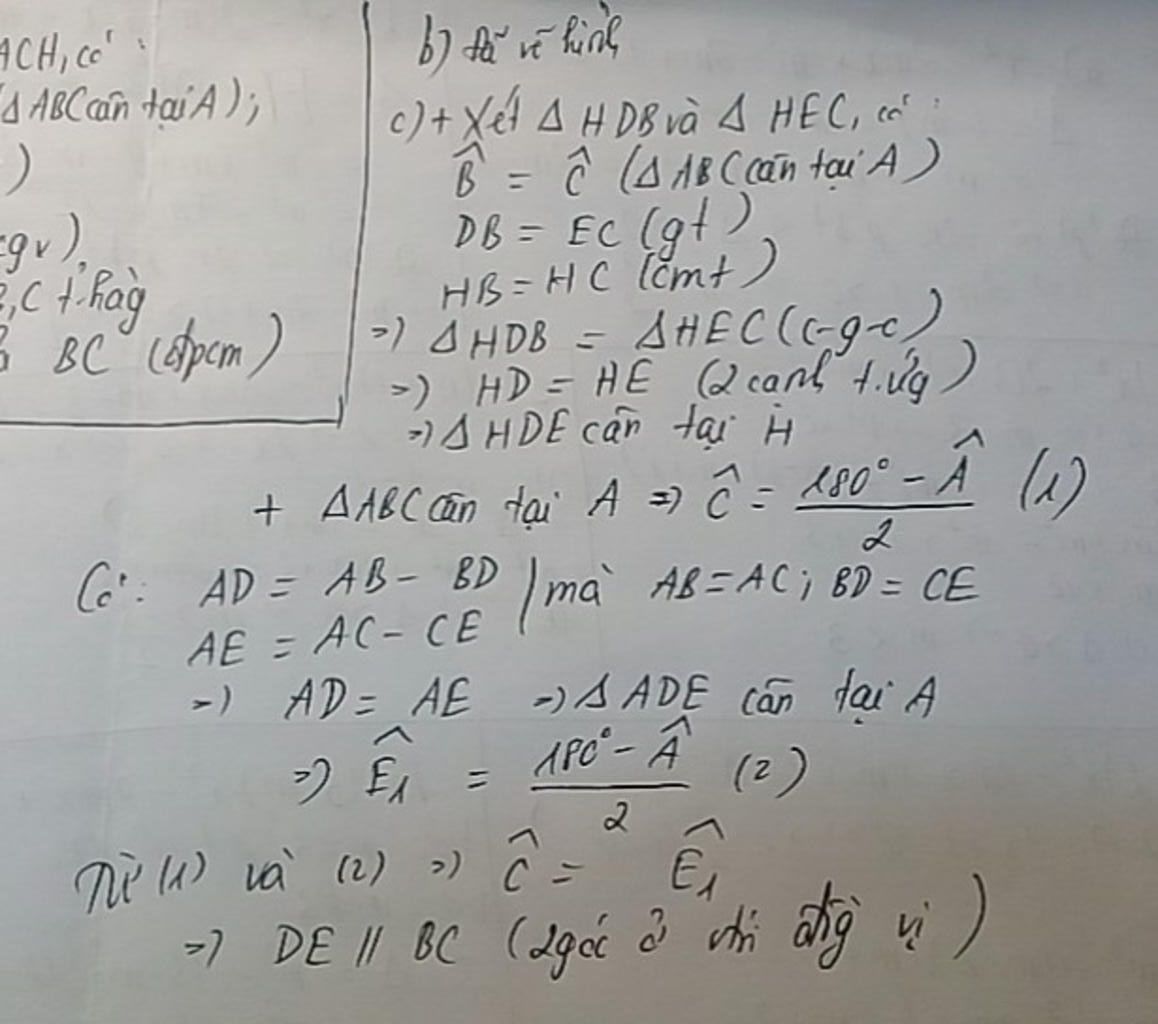 ACH, có :
ΔABC cân tại A);
)
cgv)
B, C t.hàg
BC (đpcm)
b) đã vẽ hình
c) + Xét Δ HDB và Δ HEC, có :
B̂ = Ĉ (Δ ABC cân tại A)
DB = EC (gt)
HB = HC (cmt)
=) Δ HDB = Δ HEC (c-g-c)
=) HD = HE (2 cạnh t.ứg)
=) Δ HDE cân tại H
+ ΔABC cân tại A =) Ĉ = (180° - Â)/2 (1)
Có: AD = AB - BD | mà AB = AC ; BD = CE
AE = AC - CE
=) AD = AE =) Δ ADE cân tại A
=) Ê₁ = (180° - Â)/2 (2)
Từ (1) và (2) =) Ĉ = Ê₁
=) DE // BC (2 góc ở vtrí đồg vị)